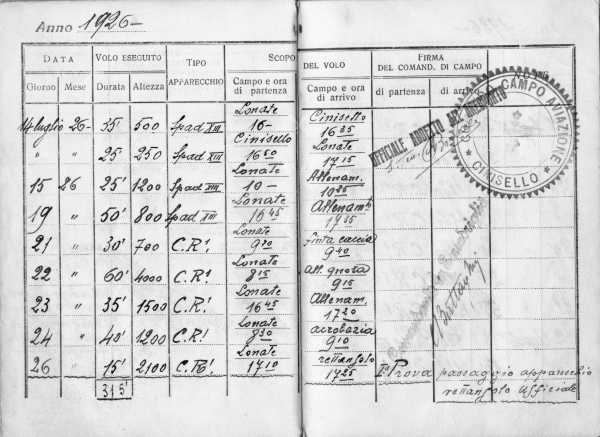 Anno 1926-
DATA VOLO ESEGUITO TIPO APPARECCHIO SCOPO DEL VOLO FIRMA DEL COMAND. DI CAMPO
Giorno Mese Durata Altezza Campo e ora di partenza Campo e ora di arrivo di partenza di arrivo
14 luglio 26- 35' 500 Spad XIII Lonate 16- Cinisello 16 35
" " 25' 250 Spad XIII Cinisello 16 50 Lonate 17 15
15 26 25' 1200 Spad XIII Lonate 10- Allenam. 10 25
19 " 50' 800 Spad XIII Lonate 16 45 Allenam. 17 35
21 " 30' 700 C.R! Lonate Finta caccia 9 40
22 " 60' 4000 C.R! Lonate 8 15 All. quota 9 15
23 " 35' 1500 C.R! Lonate 16 45 Allenam. 17 20
24 " 40' 1200 C.R! Lonate 8 30 acrobazia 9 10
26 " 15' 2100 C.R! Lonate 17 10 rettangolo 17 25 Iª Prova passaggio apparecchio
315' rettangolo ufficiale
UFFICIALE ADDETTO
CAMPO AVIAZIONE
CINISELLO